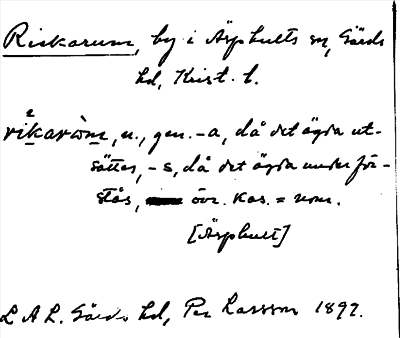 Rickarum, by i Äsphults sn, Gärds
hd, Krist. l.
rikaròm, n., gen. -a, då det ägda ut-
sättes, -s, då det ägda underför-
stås, övr. kas. = nom.
[Äsphult]
L A L. Gärds hd, Per Larsson 1897.